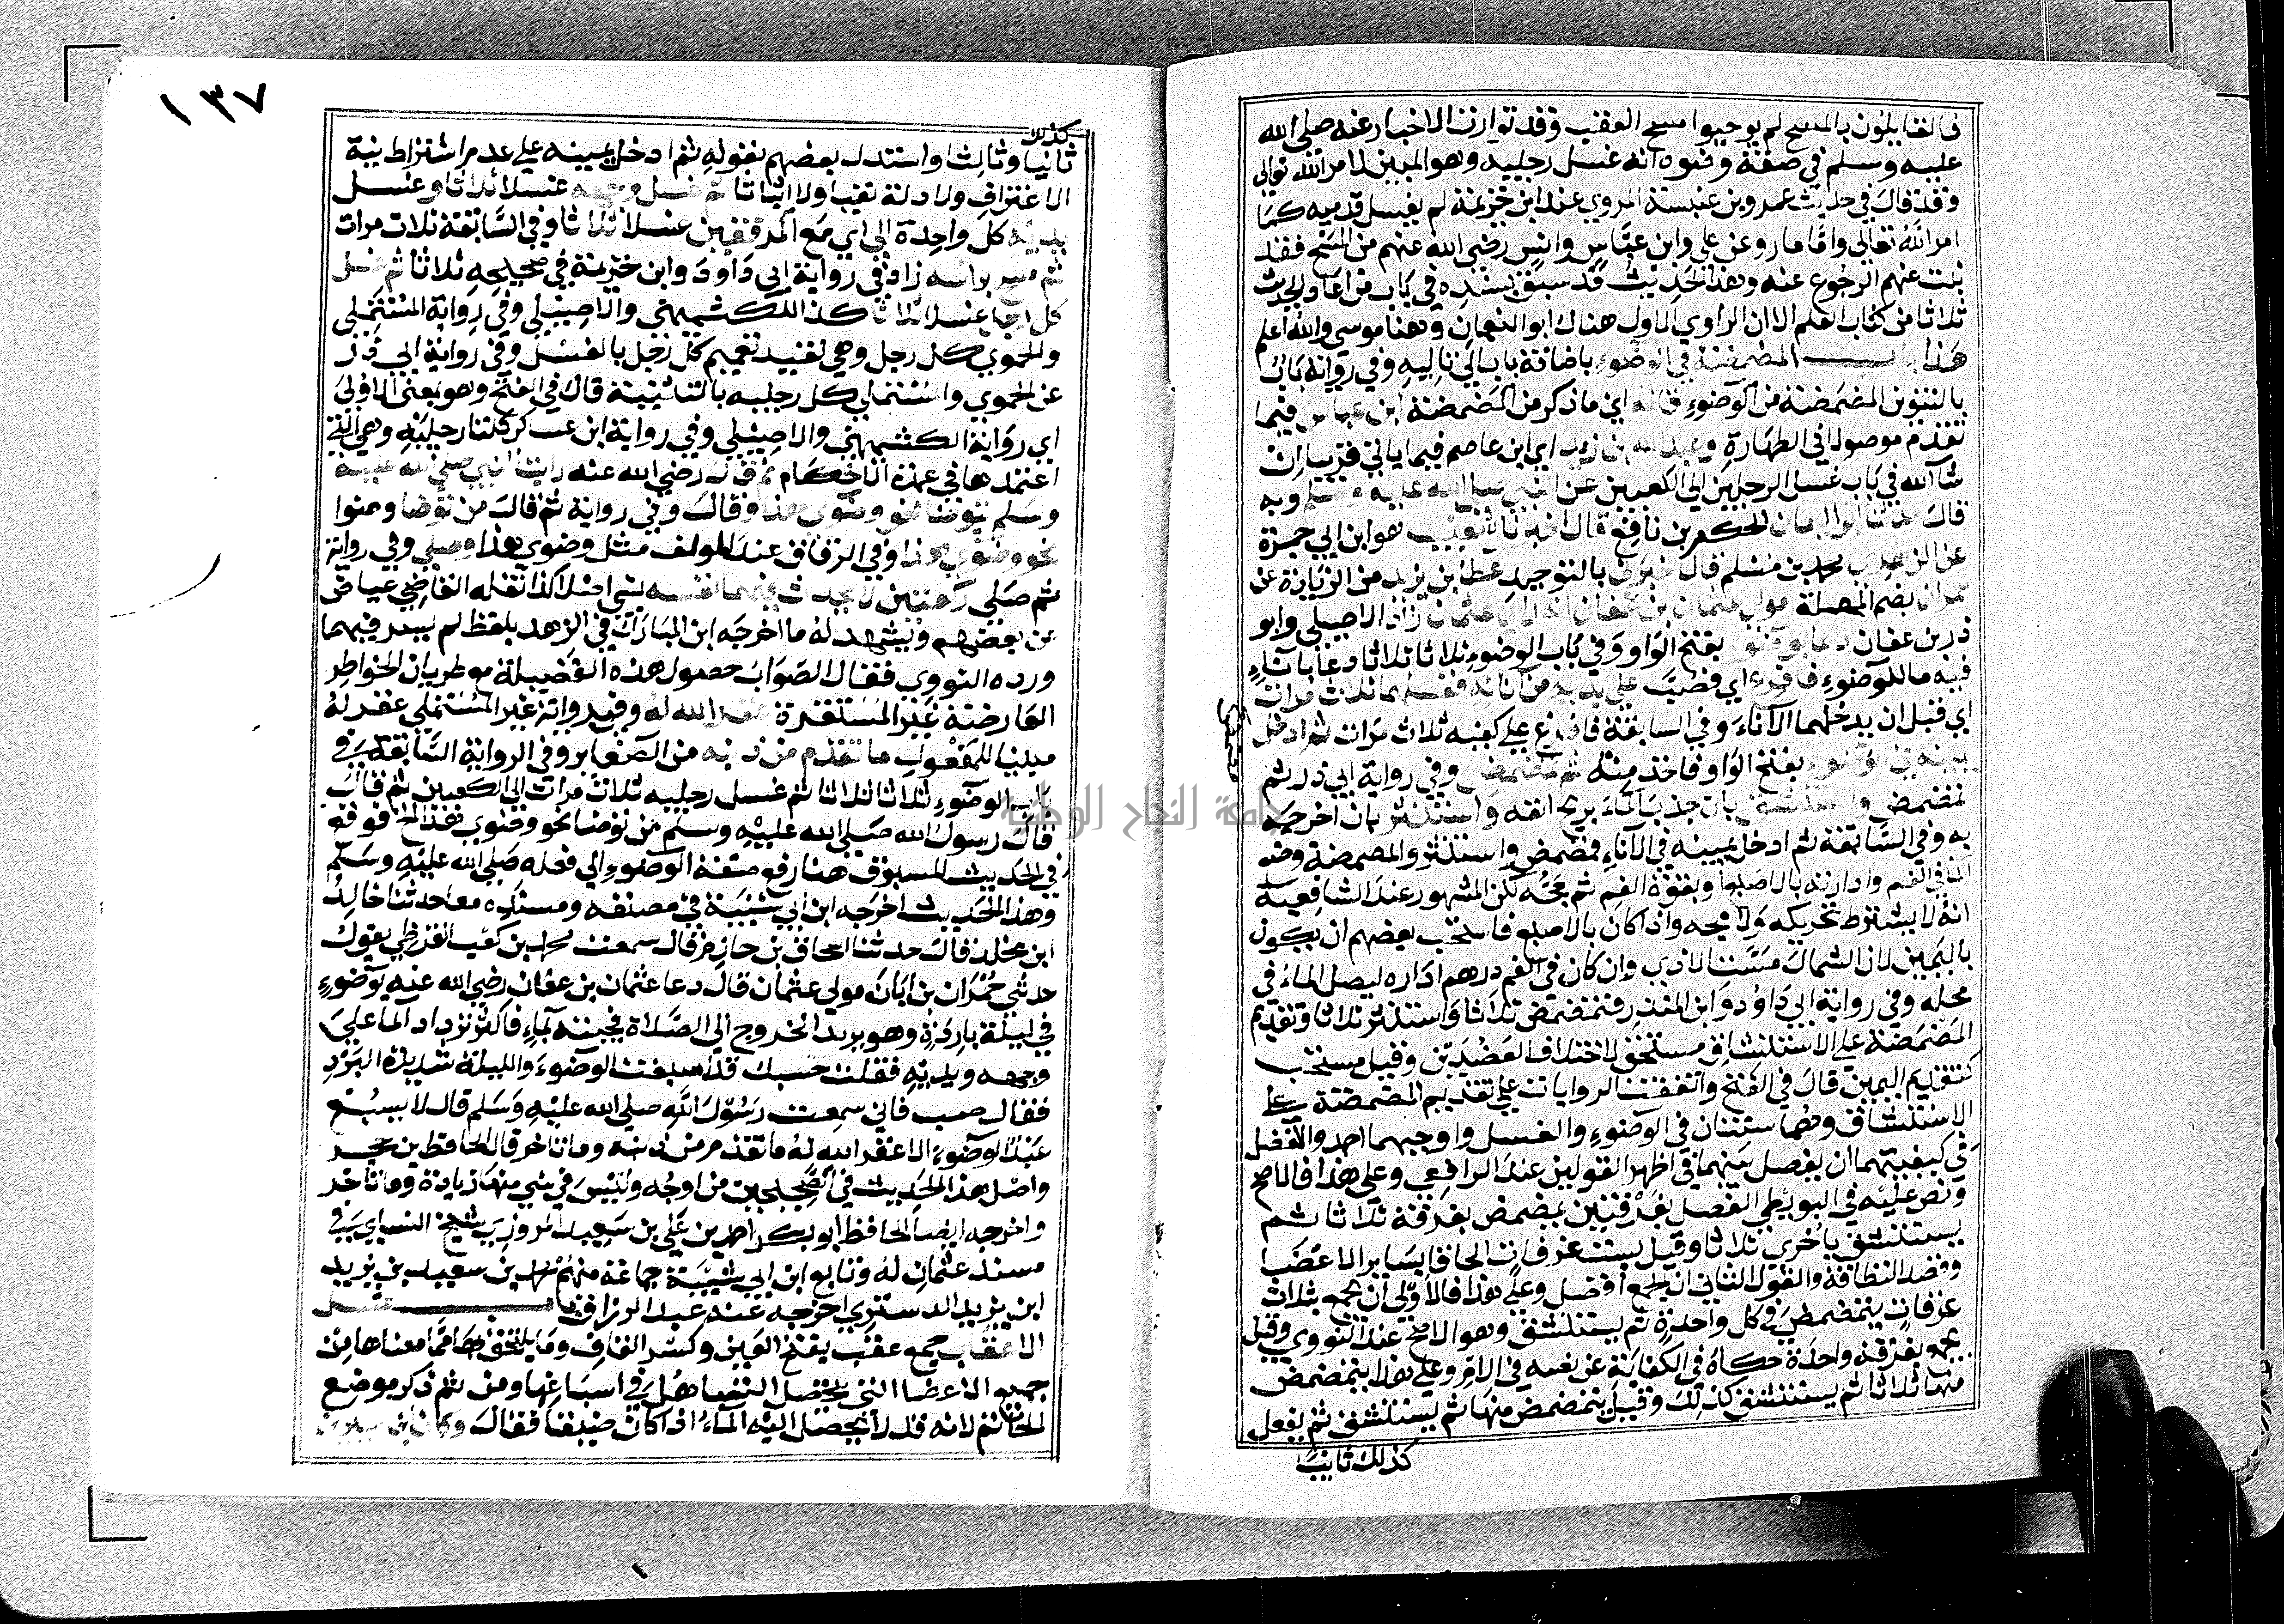 فالقايلون بالمسح لم يوجبوا مسح العقب وقد تواترت الاخبار عنه صلى الله
عليه وسلم في صفة وضوه انه غسل رجليه وهو المبين لامر الله تعالى
وقد قال في حديث عمرو بن عنبسة المروي عند ابن خزيمة ثم يغسل قدميه كما
امر الله تعالى واما ما روي عن علي وابن عباس وانس رضي الله عنهم من المسح فقد
ثبت عنهم الرجوع عنه وهذا الحديث قد سبق بسنده في باب من اعاد الحديث
ثلاثا من كتاب العلم الا ان الراوي الاول هناك ابو النعمان وهنا موسى والله اعلم
هذا باب المضمضة في الوضوء باضافة باب الى تاليه وفي رواية باب
بالتنوين المضمضة من الوضوء قاله اي ما ذكر من المضمضة ابن عباس فيما
تقدم موصولا في الطهارة وعبد الله بن زيد اي ابن عاصم فيما ياتي قريبا ان
شا الله في باب غسل الرجلين الى الكعبين عن النبي صلى الله عليه وسلم وبه
قال حدثنا ابو اليمان الحكم بن نافع قال اخبرنا شعيب هو ابن ابي حمزة
عن الزهري محمد بن مسلم قال اخبرني بالتوحيد عطا بن يزيد من الزيادة عن
حمران بضم المهملة مولى عثمان بن عفان انه راى عثمان زاد الاصيلي وابو
ذر بن عفان دعا بوضوء بفتح الواو وفي باب الوضوء ثلاثا ثلاثا دعا باناء
فيه ما للوضوء فافرغ اي فصب على يديه من انائه فغسلهما ثلاث مرات
اي قبل ان يدخلهما الاناء وفي السابقة فافرغ على كفيه ثلاث مرات ثم ادخل
يمينه في الوضوء بفتح الواو فاخذ منه ثم تمضمض وفي رواية ابي ذر ثم
تمضمض واستنشق بان جذب الماء بريح انفه واستنثر بان اخرجه
به وفي السابقة ثم ادخل يمينه في الاناء فمضمض واستنثر والمضمضة وضع
الما في الفم وادارته بالاصبع او بقوة الفم ثم مجه لكن المشهور عند الشافعية
انه لا يشترط تحريكه ولا مجه واذا كان بالاصبع فاستحب بعضهم ان يكون
باليمين لان الشمال مست الاذى وان كان في الفم درهم اداره ليصل الماء في
محله وفي رواية ابي داود وابن المنذر فتمضمض ثلاثا واستنثر ثلاثا وتقديم
المضمضة على الاستنشاق مستحق لاختلاف العضوين وقيل مستحب
كتقديم اليمين قال في الفتح واتفقت الروايات على تقديم المضمضة على
الاستنشاق وهما سنتان في الوضوء والغسل واوجبهما احمد والافضل
في كيفيتهما ان يفصل بينهما في اظهر القولين عند الرافعي وعلى هذا فالاصح
ونص عليه في البويطي الفصل بغرفتين يمضمض بغرفة ثلاثا ثم
يستنشق باخرى ثلاثا وقيل بست غرفات الحاقا بساير الاعضا
وقصد النظافة والقول الثاني ان الجمع افضل وعلى هذا فالاولى ان يجمع بثلاث
غرفات يتمضمض في كل واحدة ثم يستنشق وهو الاصح عند النووي وقيل
يجمع بغرفة واحدة حكاه في الكفاية عن نصه في الام وعلى هذا يتمضمض
منها ثلاثا ثم يستنشق كذلك وقيل يتمضمض منها ثم يستنشق ثم يفعل
كذلك ثانيا
١٣٧
كذلك
ثانيا وثالثا واستدل بعضهم بقوله ثم ادخل يمينه على عدم اشتراط نية
الاغتراف ولا دلالة نفيا ولا اثباتا ثم غسل وجهه غسلا ثلاثا وغسل
يديه كل واحدة الى اي مع المرفقين غسلا ثلاثا وفي السابقة ثلاث مرات
ثم مسح براسه زاد في رواية ابي داود وابن خزيمة في صحيحه ثلاثا ثم غسل
كل رجل غسلا ثلاثا كذا للكشميهني والاصيلي وفي رواية المستملي
والحموي كل رجل وهي تفيد تعميم كل رجل بالغسل وفي رواية ابي ذر
عن الحموي والمستملي كل رجليه بالتثنية قال في الفتح وهو بمعنى الاولى
اي رواية الكشميهني والاصيلي وفي رواية ابن عساكر كلتا رجليه وهي التي
اعتمدها في عمدة الاحكام ثم قال رضي الله عنه رايت النبي صلى الله عليه
وسلم يتوضا نحو وضوى هذا وقال وفي رواية ثم قال من توضا وضوا
نحو وضوى هذا وفي الرقاق عند المولف مثل وضوى هذا وصلى وفي رواية
ثم صلى ركعتين لا يحدث فيهما نفسه بشي اصلا كذا نقله القاضي عياض
عن بعضهم ويشهد له ما اخرجه ابن المبارك في الزهد بلفظ لم يسر فيهما
ورده النووي فقال الصواب حصول هذه الفضيلة مع طريان الخواطر
العارضة غير المستقرة غفر الله له وفي رواية غير المستملي غفر له
مبنيا للمفعول ما تقدم من ذنبه من الصغاير وفي الرواية السابقة في
باب الوضوء ثلاثا ثلاثا ثم غسل رجليه ثلاث مرات الى الكعبين ثم قال
قال رسول الله صلى الله عليه وسلم من توضا نحو وضوى هذا الخ فوقع
في الحديث المسبوق هنا رفع صفة الوضوء الى فعله صلى الله عليه وسلم
وهذا الحديث اخرجه ابن ابي شيبة في مصنفه ومسنده معا حدثنا خالد
ابن مخلد قال حدثنا اسحاق بن حازم قال سمعت محمد بن كعب القرظي يقول
حدثني حمران بن ابان مولى عثمان قال دعا عثمان بن عفان رضي الله عنه بوضوء
في ليلة باردة وهو يريد الخروج الى الصلاة فجئته بماء فاكثر ترداد الما على
وجهه ويديه فقلت حسبك قد اسبغت الوضوء والليلة شديدة البرد
فقال صب فاني سمعت رسول الله صلى الله عليه وسلم قال لا يسبغ
عبد الوضوء الا غفر الله له ما تقدم من ذنبه وما تاخر قال الحافظ بن حجر
واصل هذا الحديث في الصحيحين من اوجه وليس في شي منها زيادة وما تاخر
واخرجه ايضا الحافظ ابو بكر احمد بن علي بن سعيد المروزي شيخ النساي في
مسند عثمان له وتابع ابن ابي شيبة جماعة منهم محمد بن سعيد بن يزيد
ابن يزيد الدستري اخرجه عند عبد الرزاق باب غسل
الاعقاب جمع عقب بفتح العين وكسر القاف وما يلتحق بها مما معناها من
جميع الاعضا التي يحصل التساهل في اسباغها ومن ثم ذكر موضع
الخاتم لانه قد لا يحصل اليه الماء اذا كان ضيقا فقال وكان ابن سيرين
جامعة النجاح الوطنية